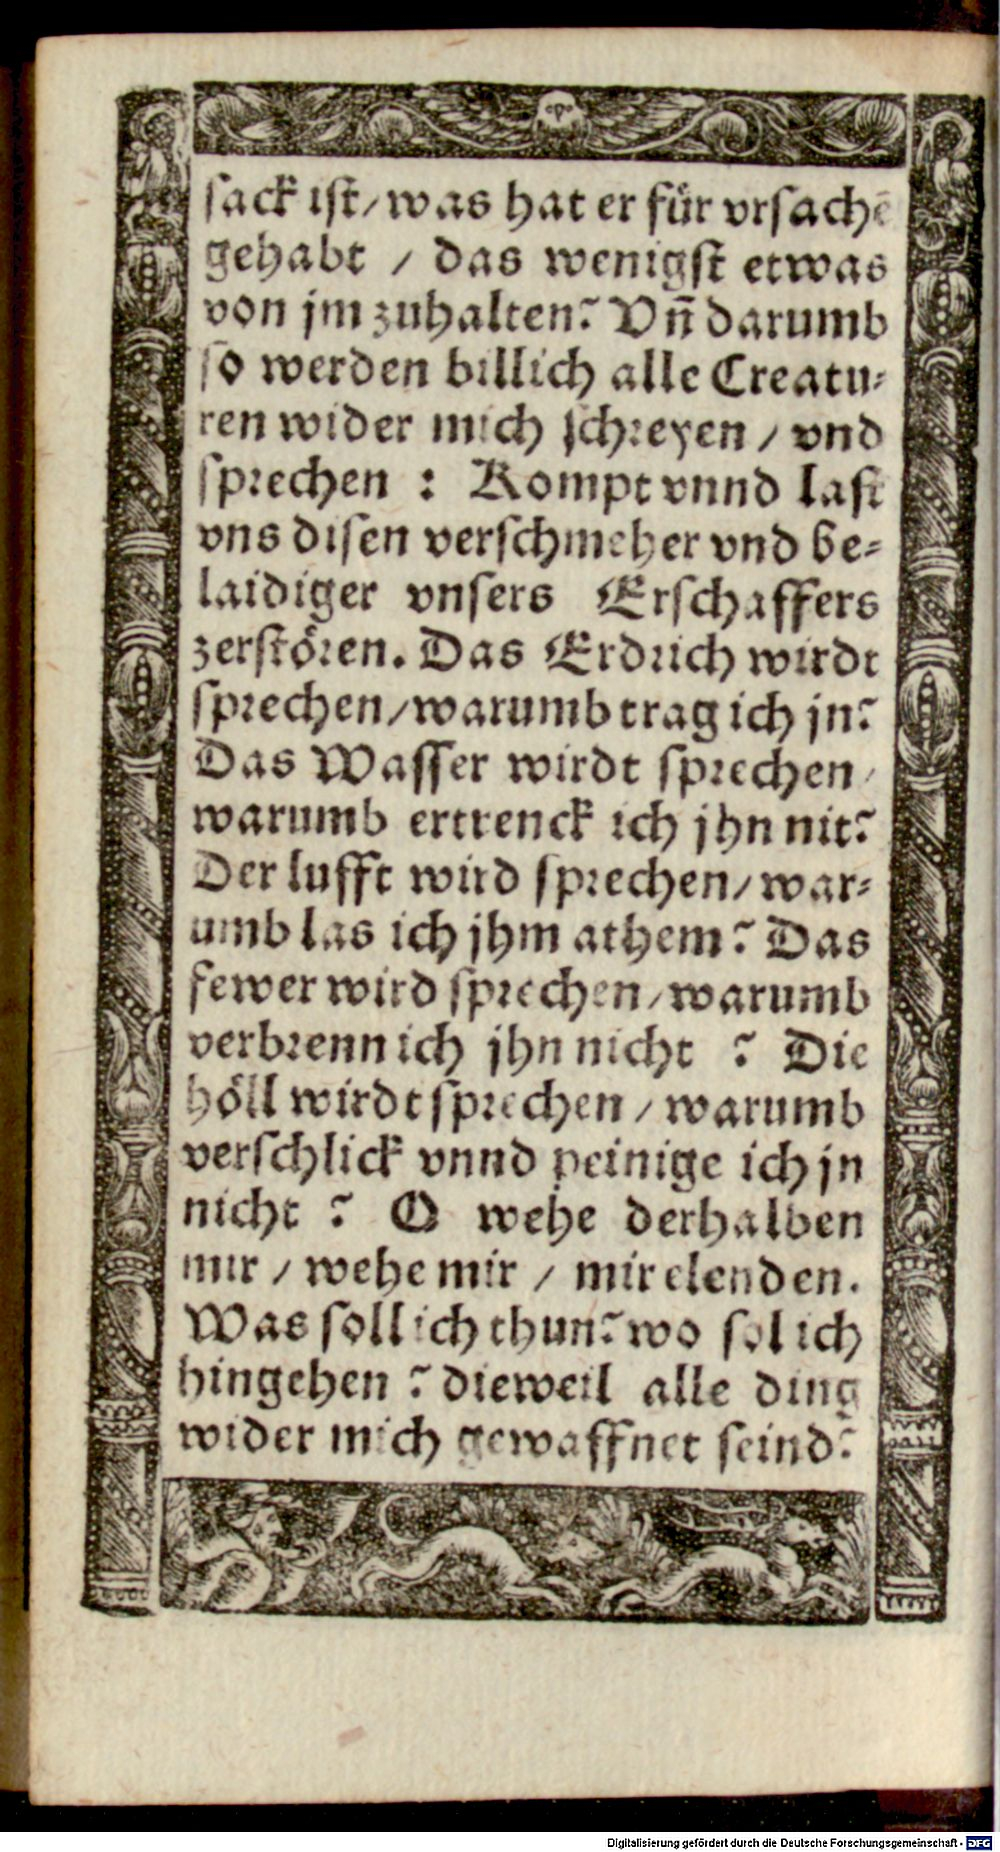 sack ist/ was hat er für vrsachē
gehabt / das wenigst etwas
von jm zuhalten? Vn̄ darumb
so werden billich alle Creatu⸗
ren wider mich schreyen / vnd
sprechen : Kompt vnnd last
vns disen verschmeher vnd be⸗
laidiger vnsers Erschaffers
zerstören. Das Erdrich wirdt
sprechen/ warumb trag ich jn?
Das Wasser wirdt sprechen/
warumb ertrenck ich jhn nit?
Der lufft wird sprechen/ war⸗
umb las ich jhm athem? Das
fewer wird sprechen/ warumb
verbrenn ich jhn nicht ? Die
höll wirdt sprechen / warumb
verschlick vnnd peinige ich jn
nicht ? O wehe derhalben
mir / wehe mir / mir elenden.
Was soll ich thun? wo sol ich
hingehen ? dieweil alle ding
wider mich gewaffnet seind?
Digitalisierung gefördert durch die Deutsche Forschungsgemeinschaft - DFG